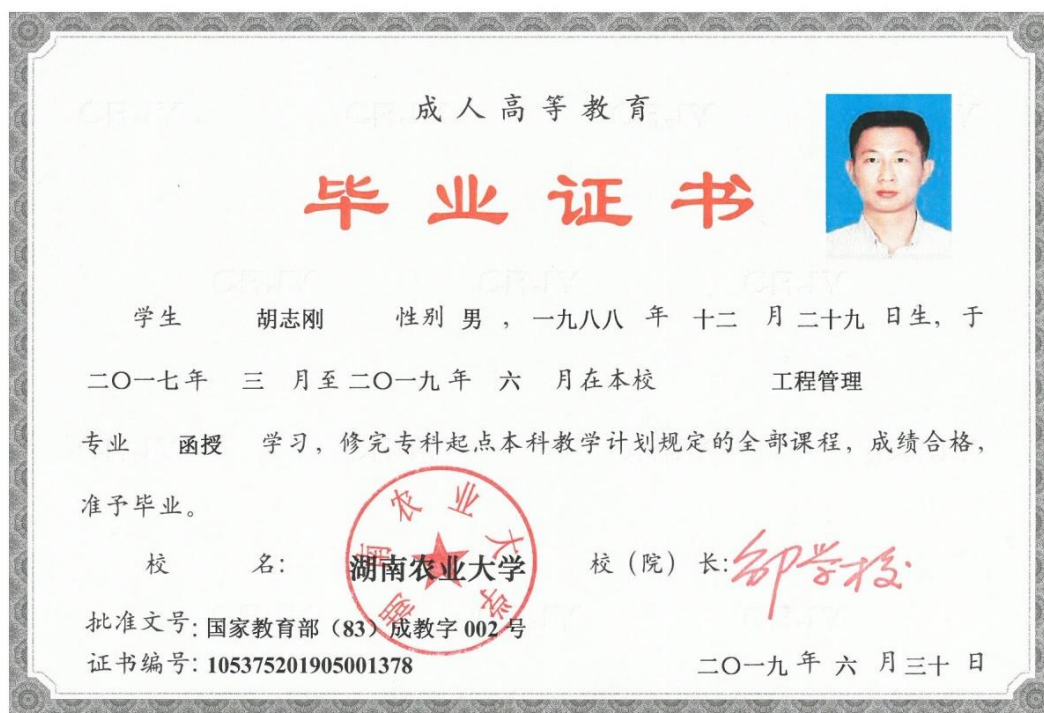 成人高等教育
毕业证书
学生 胡志刚 性别 男 , 一九八八 年 十二 月 二十九 日生, 于
二〇一七年 三 月至二〇一九年 六 月在本校 工程管理
专业 函授 学习, 修完专科起点本科教学计划规定的全部课程, 成绩合格,
准予毕业。
校 名: 湖南农业大学 校(院)长: 邹学校
湖南农业大学
批准文号: 国家教育部(83)成教字 002 号
证书编号: 105375201905001378 二〇一九 年 六 月 三十 日